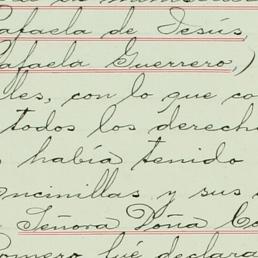 Rafaela de Jesús,
Rafaela Guerrero,)
les, con lo que co
todos los derech
había tenido
ncinillas y sus
Señora Doña Co
Romero fué declara